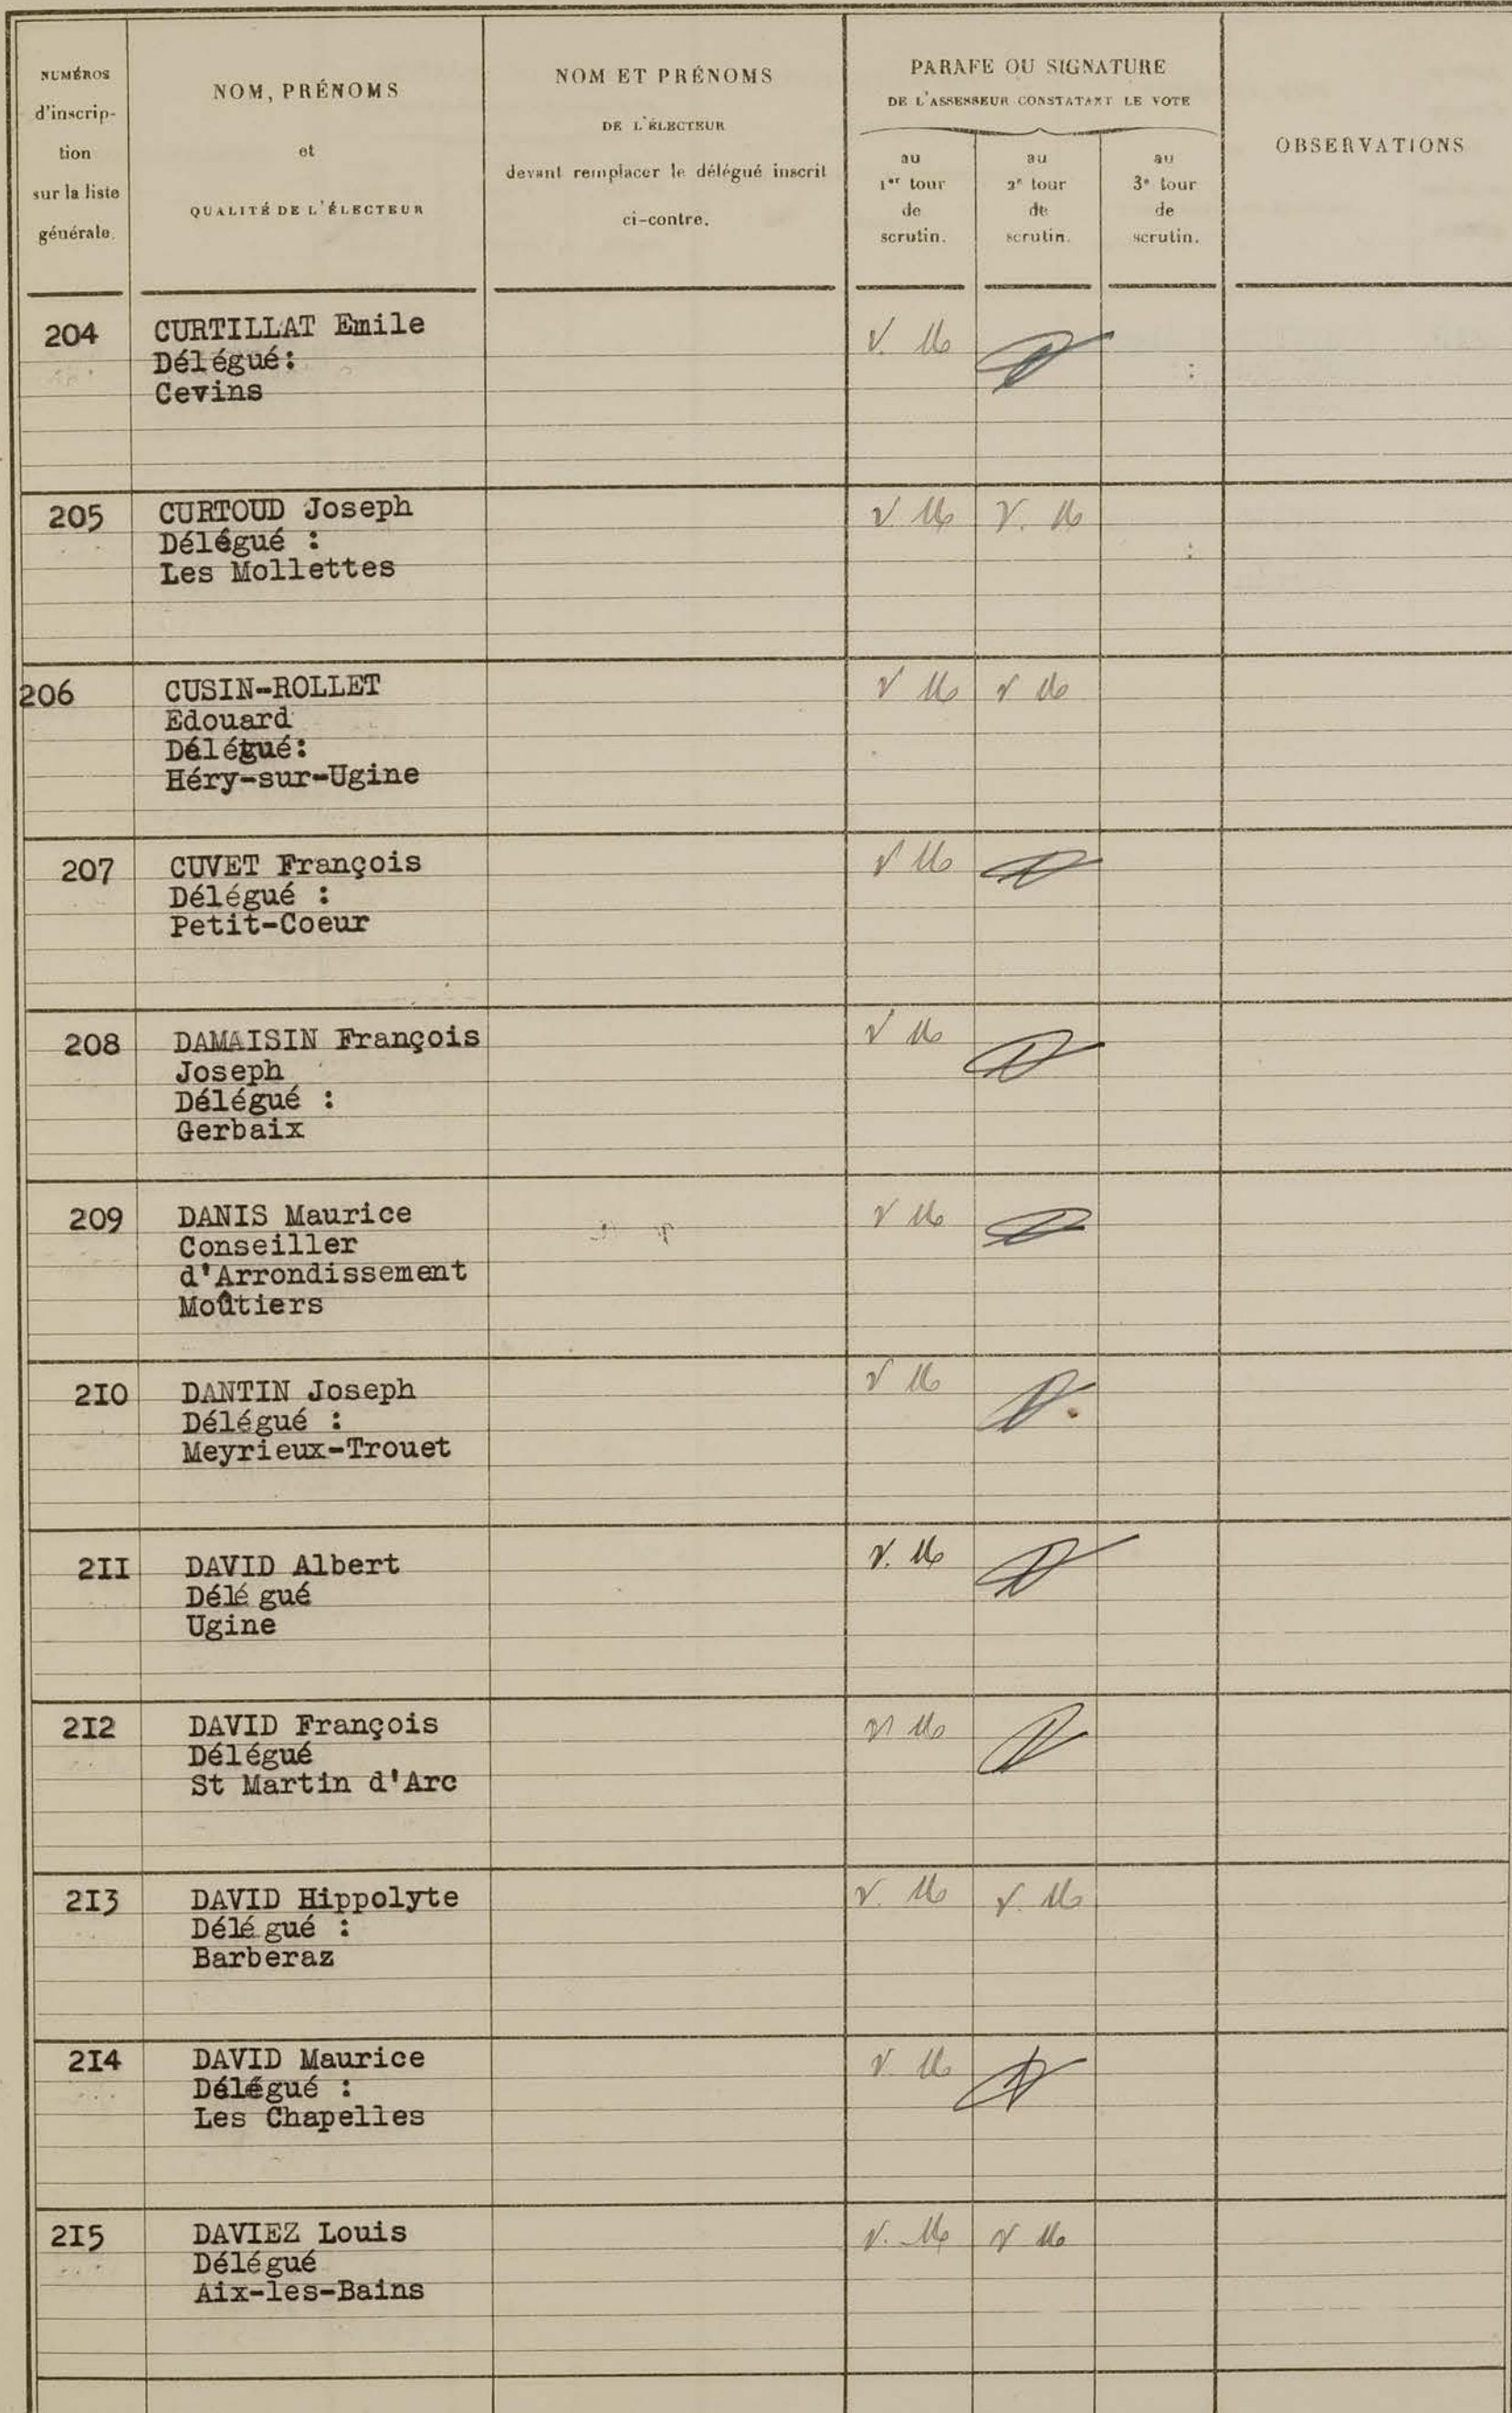 NUMÉROS
d'inscrip-
tion
sur la liste
générale.
NOM, PRÉNOMS
et
QUALITÉ DE L'ÉLECTEUR
NOM ET PRÉNOMS
DE L'ÉLECTEUR
devant remplacer le délégué inscrit
ci-contre.
PARAFE OU SIGNATURE
DE L'ASSESSEUR CONSTATANT LE VOTE
au
1er tour
de
scrutin.
au
2e tour
de
scrutin.
au
3e tour
de
scrutin.
OBSERVATIONS
204 CURTILLAT Emile
Délégué:
Cevins
205 CURTOUD Joseph
Délégué :
Les Mollettes
206 CUSIN-ROLLET
Edouard
Délégué:
Héry-sur-Ugine
207 CUVET François
Délégué :
Petit-Coeur
208 DAMAISIN François
Joseph
Délégué :
Gerbaix
209 DANIS Maurice
Conseiller
d'Arrondissement
Moûtiers
2I0 DANTIN Joseph
Délégué :
Meyrieux-Trouet
2II DAVID Albert
Délé gué
Ugine
2I2 DAVID François
Délégué
St Martin d'Arc
2I3 DAVID Hippolyte
Délé gué :
Barberaz
2I4 DAVID Maurice
Délégué :
Les Chapelles
2I5 DAVIEZ Louis
Délégué
Aix-les-Bains